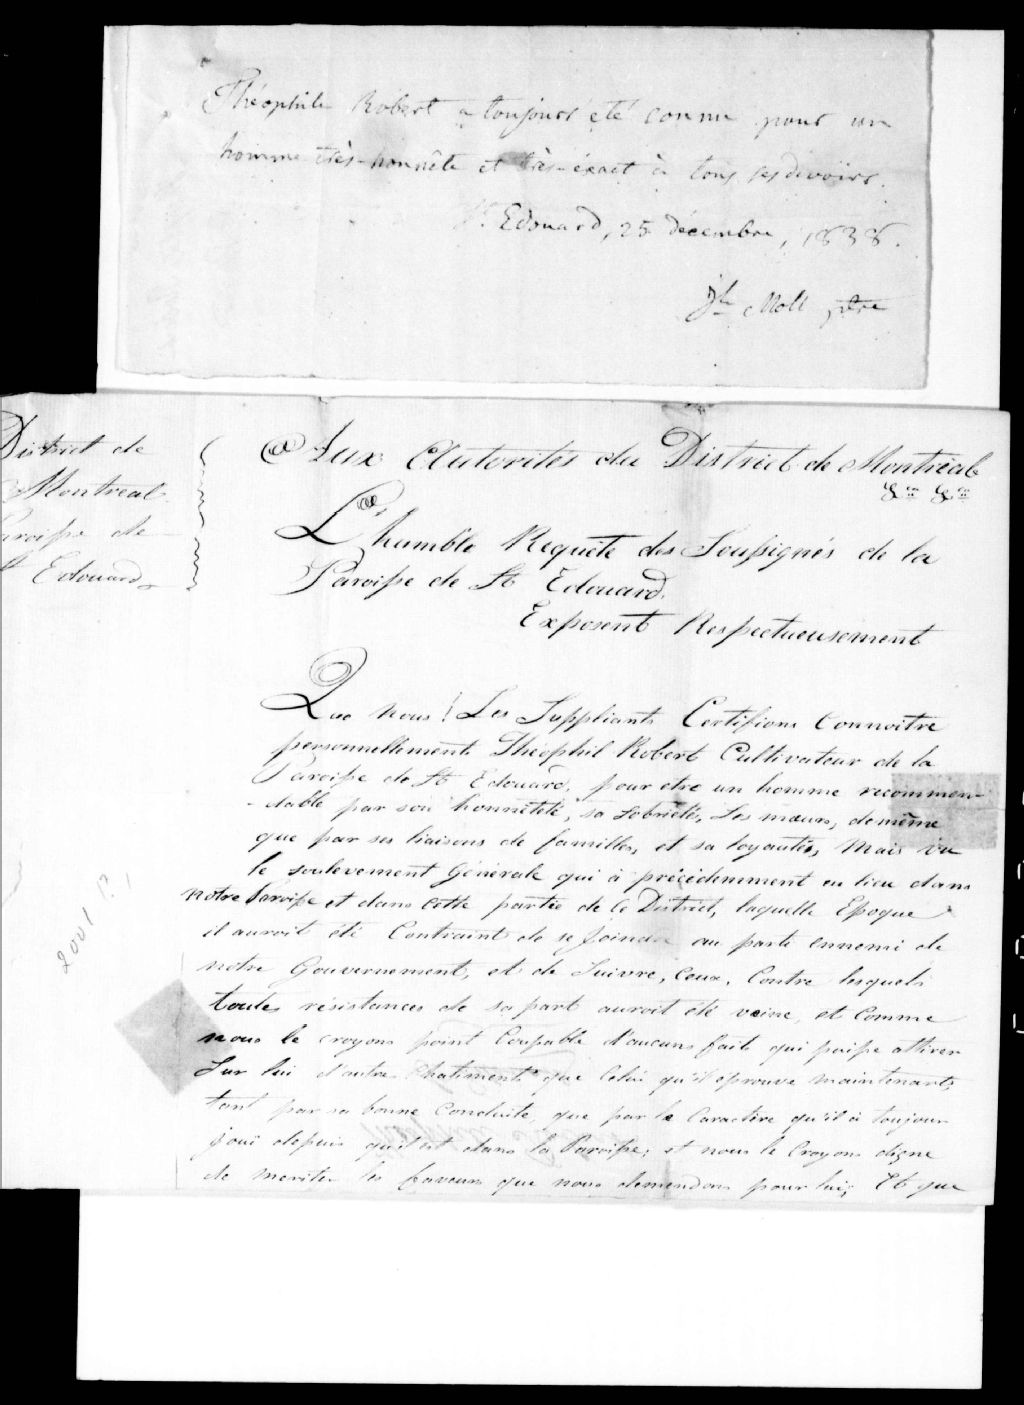 Théophile Robert a toujours été connu pour un
homme très-honnête et très-éxact à tous ses devoirs.
St. Edouard, 25 décembre, 1838.
Jh Moll ptre
District de
Montreal
Paroisse de
St Edouard
Aux Autorités du District de Montréal
&ca &ca
L'humble Requête des Soussignés de la
Paroisse de St Edouard.
Exposent Respectueusement
Que nous! Les Suppliants Certifions Connoitre
personnellement Théophil Robert Cultivateur de la
Paroisse de St Edouard, pour etre un homme recommen-
-dable par son honnêteté, sa sobriété, Ses mœurs, de même
que par ses liaisons de familles, et sa loyautés, Mais vu
le soulevement Générale qui à précédemment eu lieu dans
notre Paroisse et dans cette partie de Ce District, laquelle Epoque
il auroit été Contraint de se Joindre au parti ennemi de
notre Gouvernement, et de Suivre, Ceux, Contre lesquels
toutes résistances de sa part auroit été vaine, et Comme
nous le croyons point Coupable d'aucuns fait qui puisse attirer
Sur lui d'autre Chatiment que Celui qu'il éprouve maintenant,
tant par sa bonne Conduite, que par le Caractère qu'il à toujour
joui depuis qu'il est dans la Paroisse; et nous le Croyons digne
de meriter les faveurs que nous demendons pour lui; Et que
2001